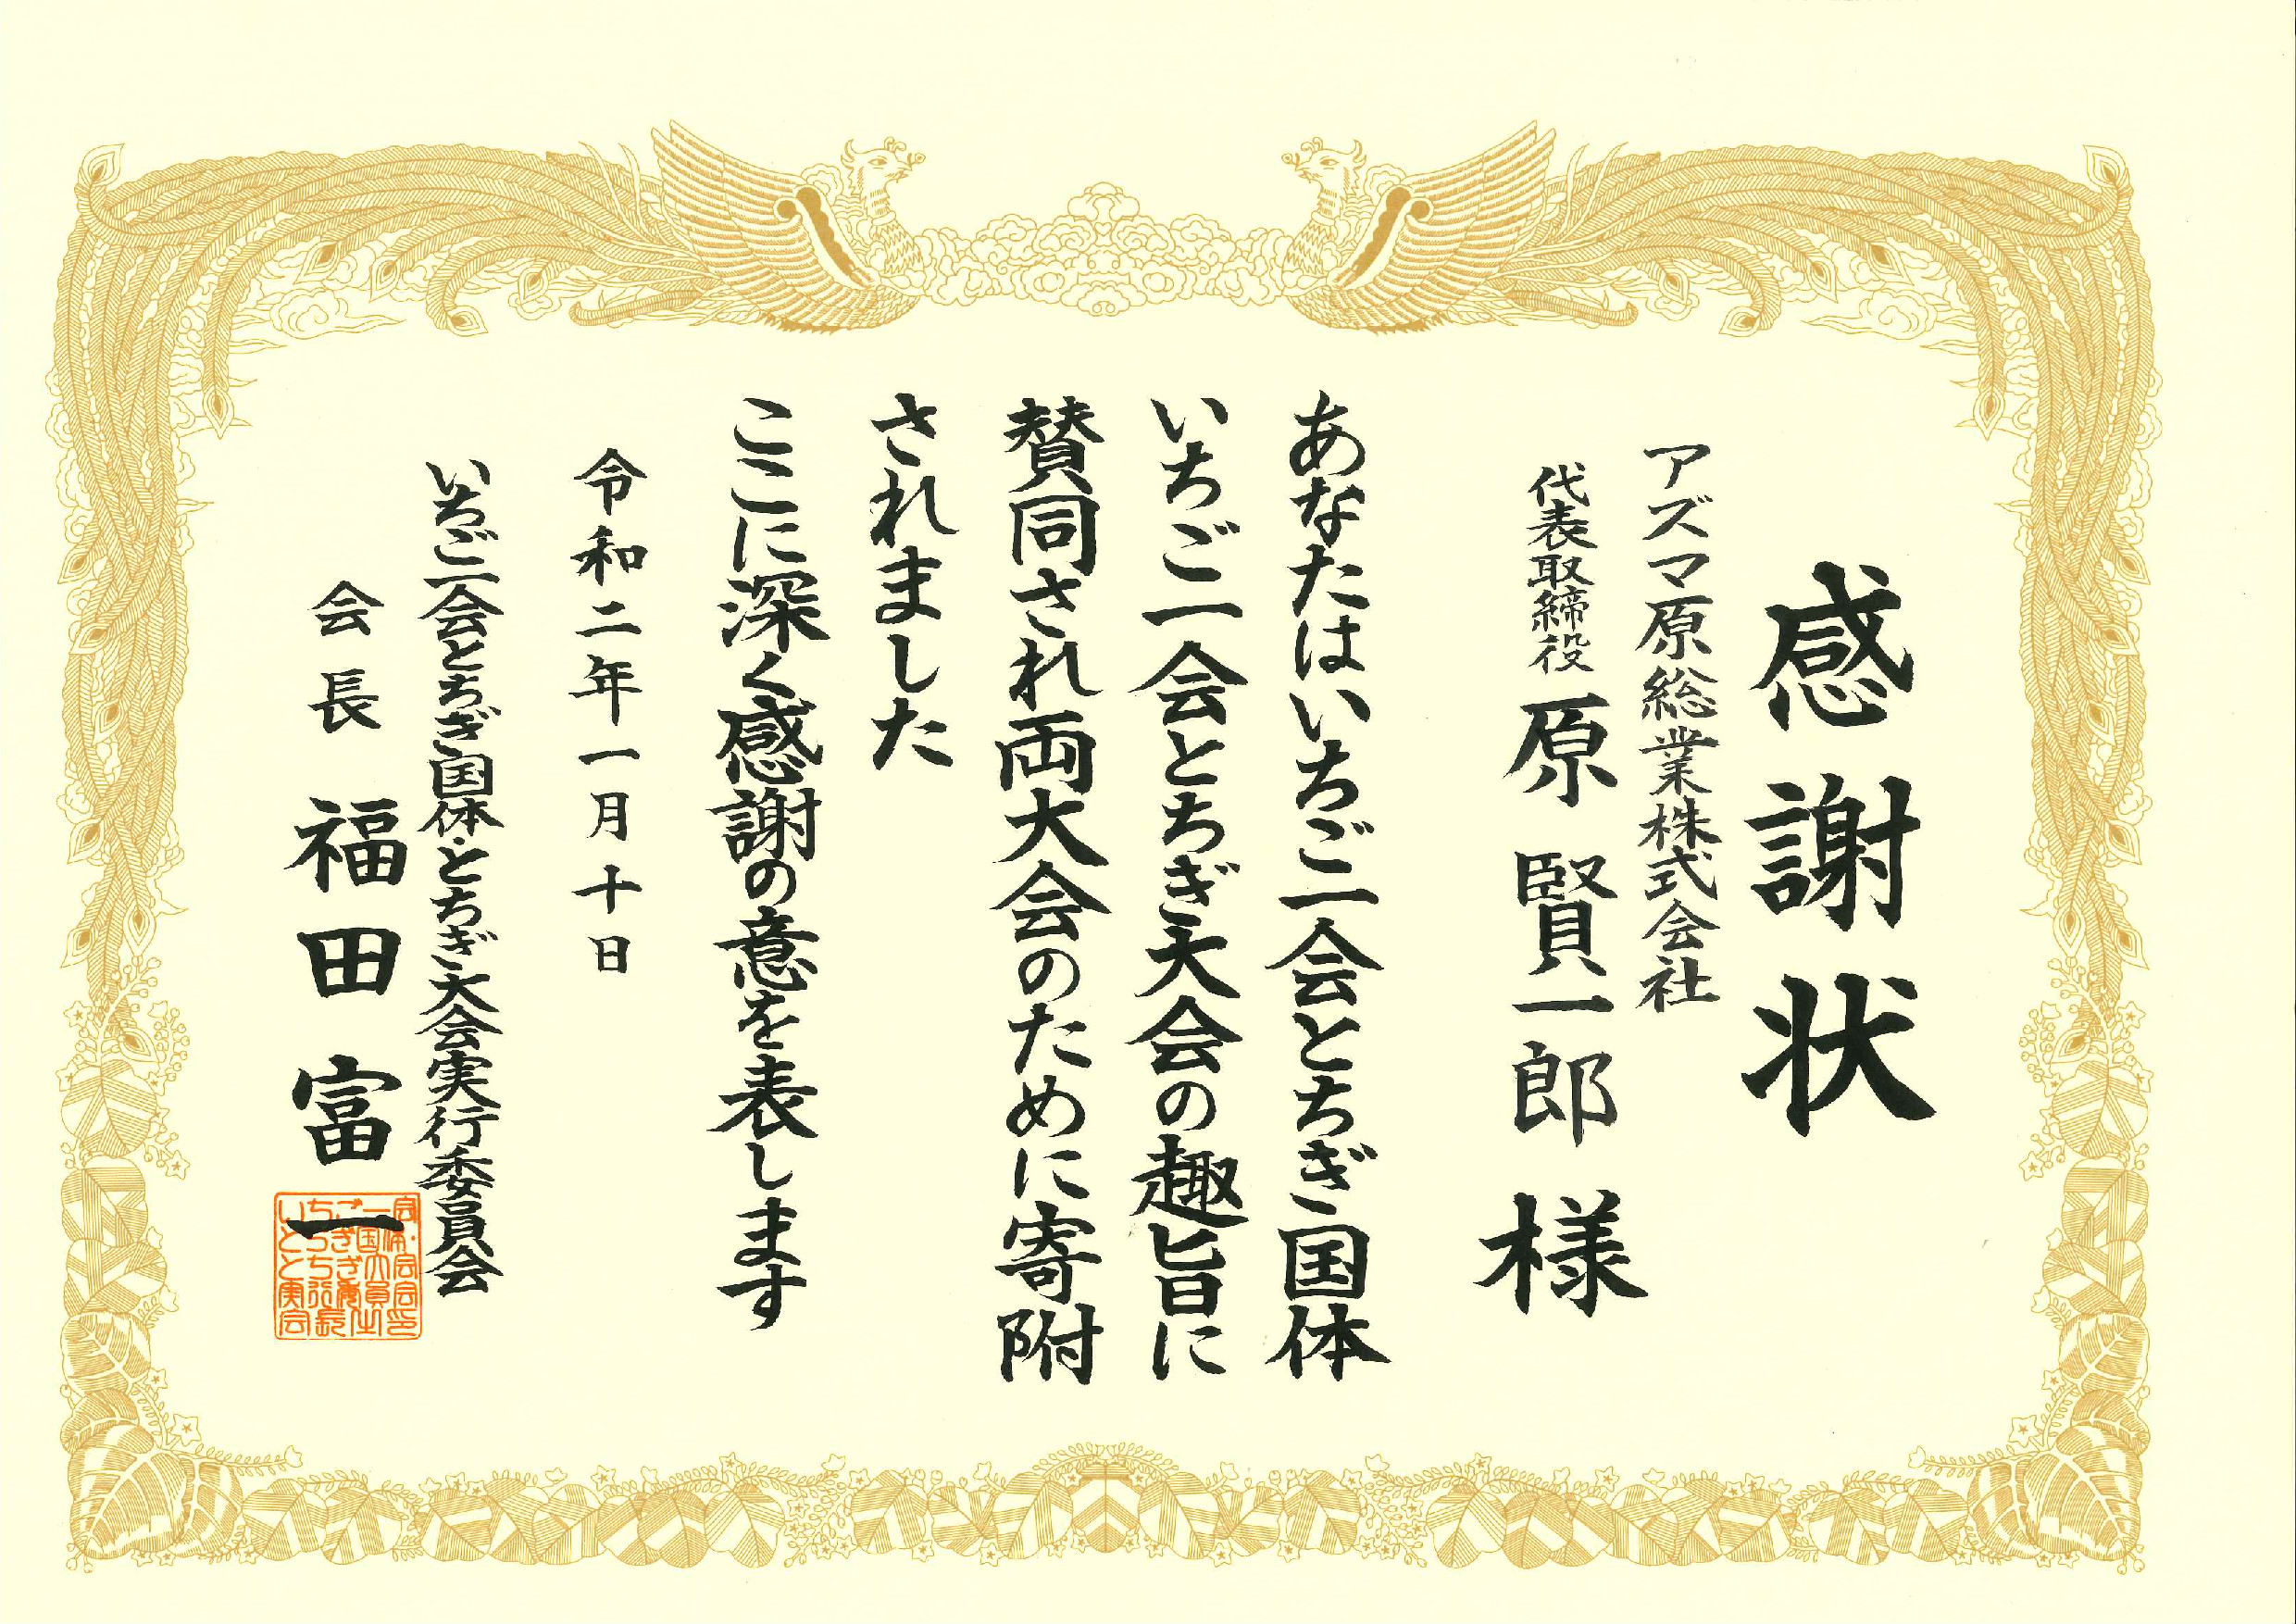 感謝状
アズマ原総業株式会社
代表取締役 原賢一郎様
あなたはいちご一会とちぎ国体
いちご一会とちぎ大会の趣旨に
賛同され両大会のために寄附
されました
ここに深く感謝の意を表します
令和二年一月十日
いちご一会とちぎ国体・とちぎ大会実行委員会
会長 福田富一